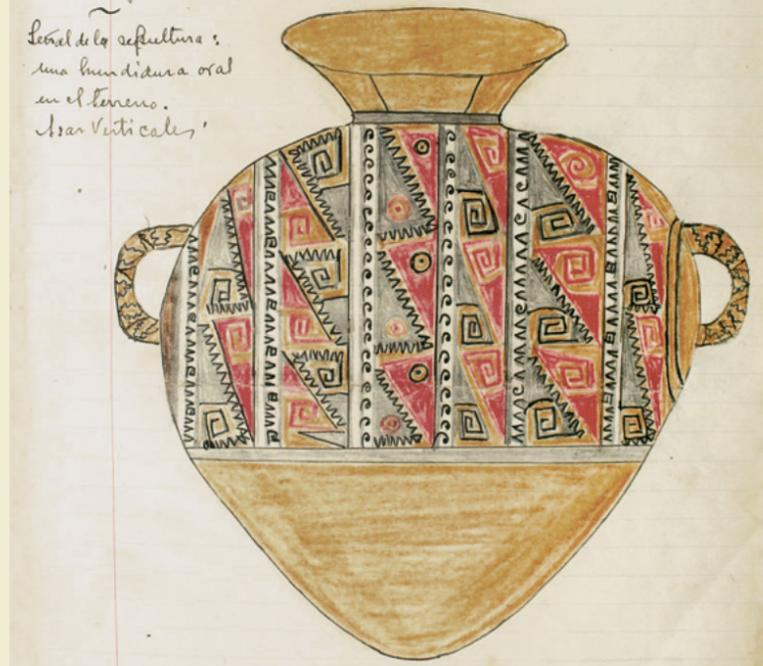 Señal de la sepultura:
una hundidura oval
en el terreno.
Asas Verticales